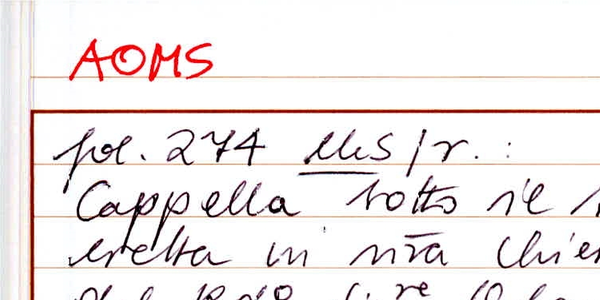 AOMS
fol. 274 MsS/r. :
Cappella sotto il
eretta in nr̄a Chies